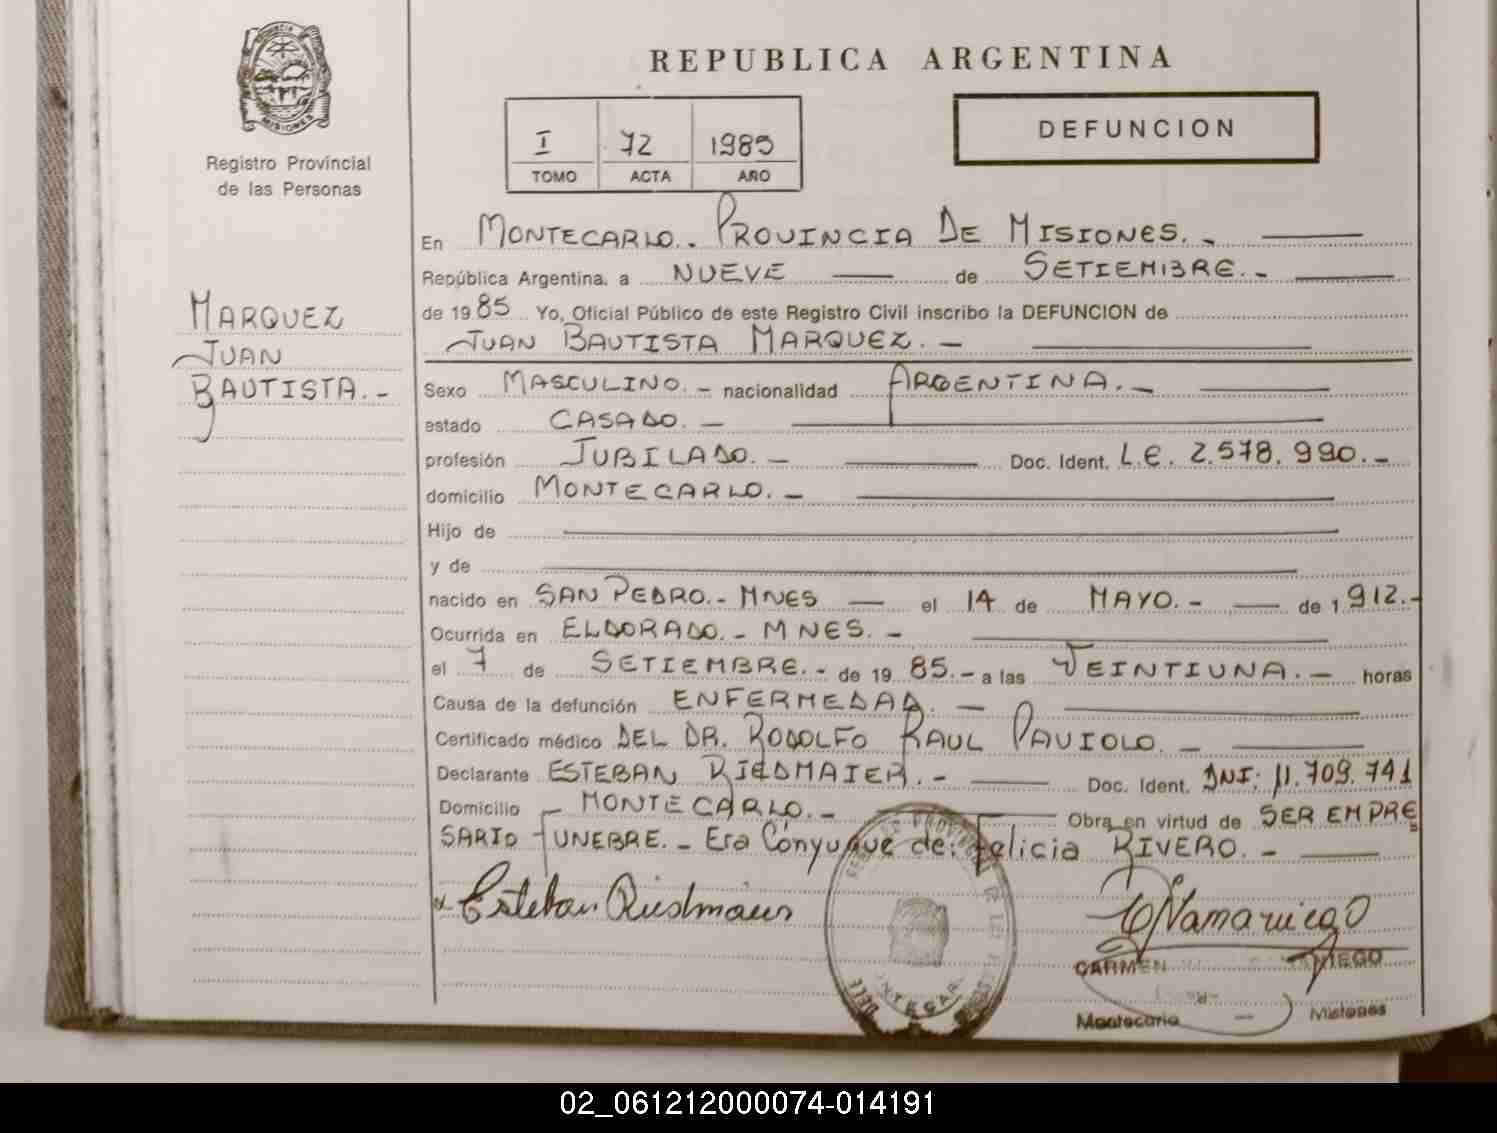 REPUBLICA ARGENTINA
MISIONES
Registro Provincial
de las Personas
I 72 1985
TOMO ACTA AÑO
DEFUNCION
MARQUEZ
JUAN
BAUTISTA.-
En MONTECARLO. PROVINCIA DE MISIONES.-
República Argentina, a NUEVE de SETIEMBRE.-
de 1985 Yo, Oficial Público de este Registro Civil inscribo la DEFUNCION de
JUAN BAUTISTA MARQUEZ.-
Sexo MASCULINO.- nacionalidad ARGENTINA.-
estado CASADO.-
profesión JUBILADO.- Doc. Ident. L.E. 2.578.990.-
domicilio MONTECARLO.-
Hijo de
y de
nacido en SAN PEDRO.- MNES el 14 de MAYO.- de 1912.-
Ocurrida en ELDORADO.- MNES.-
el 7 de SETIEMBRE.- de 1985.- a las VEINTIUNA.- horas
Causa de la defunción ENFERMEDAD.-
Certificado médico DEL DR. RODOLFO RAUL PAVIOLO.-
Declarante ESTEBAN RIEDMAIER.- Doc. Ident. DNI: 11.709.741
Domicilio MONTECARLO.- Obra en virtud de SER EMPRE
SARIO FUNEBRE.- Era Cónyugue de: Felicia RIVERO.-
Esteban Riedmaier
CARMEN
Montecarlo - Misiones
02_061212000074-014191